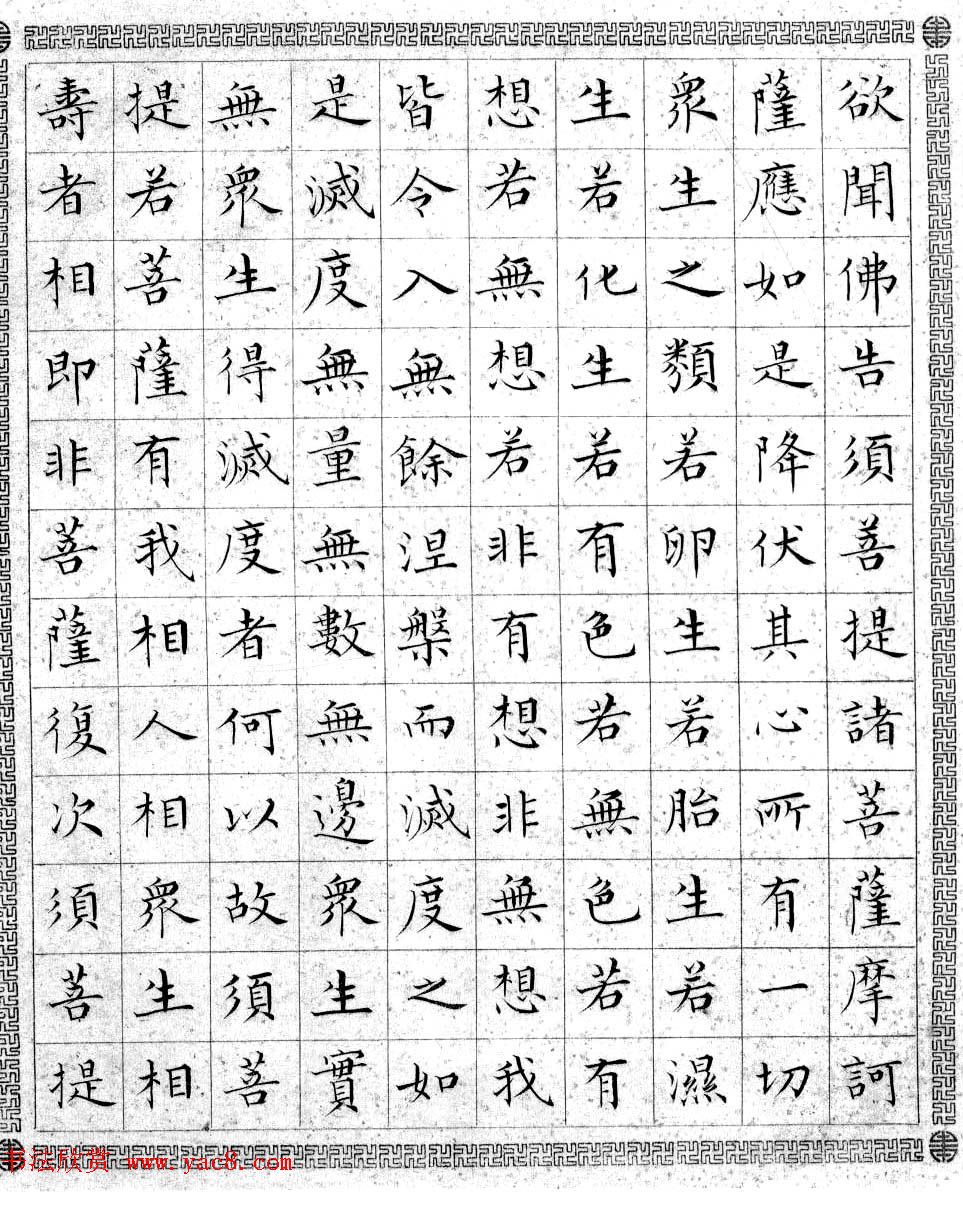 欲聞佛告須菩提諸菩薩摩訶
薩應如是降伏其心所有一切
眾生之類若卵生若胎生若濕
生若化生若有色若無色若有
想若無想若非有想非無想我
皆令入無餘涅槃而滅度之如
是滅度無量無數無邊眾生實
無眾生得滅度者何以故須菩
提若菩薩有我相人相眾生相
壽者相即非菩薩復次須菩提
书法欣赏 www.yac8.com